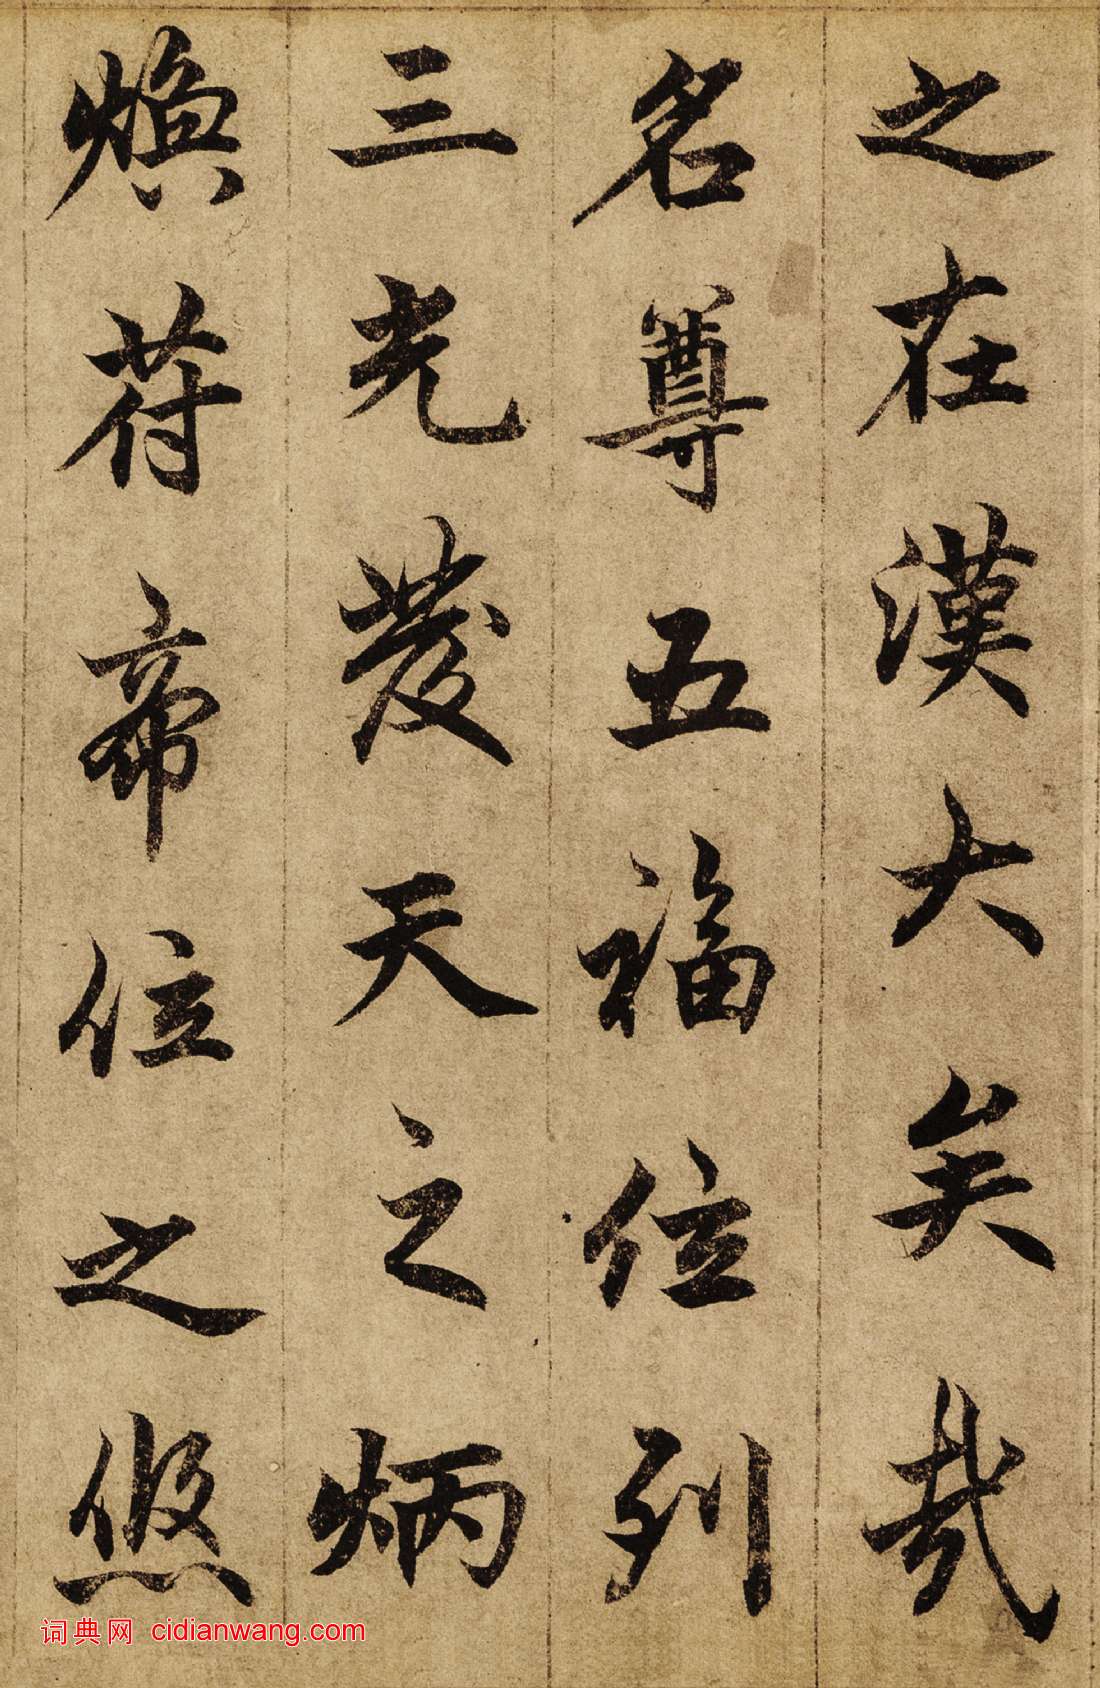 之在漢大矣哉
名尊五福位列
三光發天之炳
煥荷帝位之悠
词典网 cidianwang.com